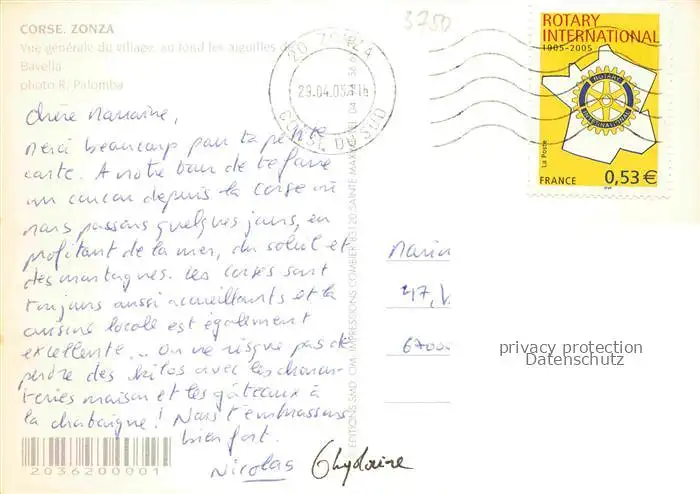 3250
CORSE. ZONZA
Vue générale du village, au fond les aiguilles de
Bavella
photo R. Palomba
20 ZONZA
29.04.05
CORSE DU SUD
ROTARY
INTERNATIONAL
1905-2005
ROTARY
INTERNATIONAL
La Poste
FRANCE 0,53 €
Chère Marraine,
Merci beaucoup pour ta petite
carte. A notre tour de te faire
un coucou depuis la Corse où
nous passons quelques jours, en
profitant de la mer, du soleil et
des montagnes. Les corses sont
toujours aussi accueillants et la
cuisine locale est également
excellente... On ne risque pas de
perdre des kilos avec les charcu-
teries maison et les gâteaux à
la chataigne! Nous t'embrassons
bien fort.
Nicolas Ghyslaine
EDITIONS SMD OM IMPRESSIONS COMBIER 83120 SAINTE-MAXIME
47,
6700
privacy protection
Datenschutz
2036200001